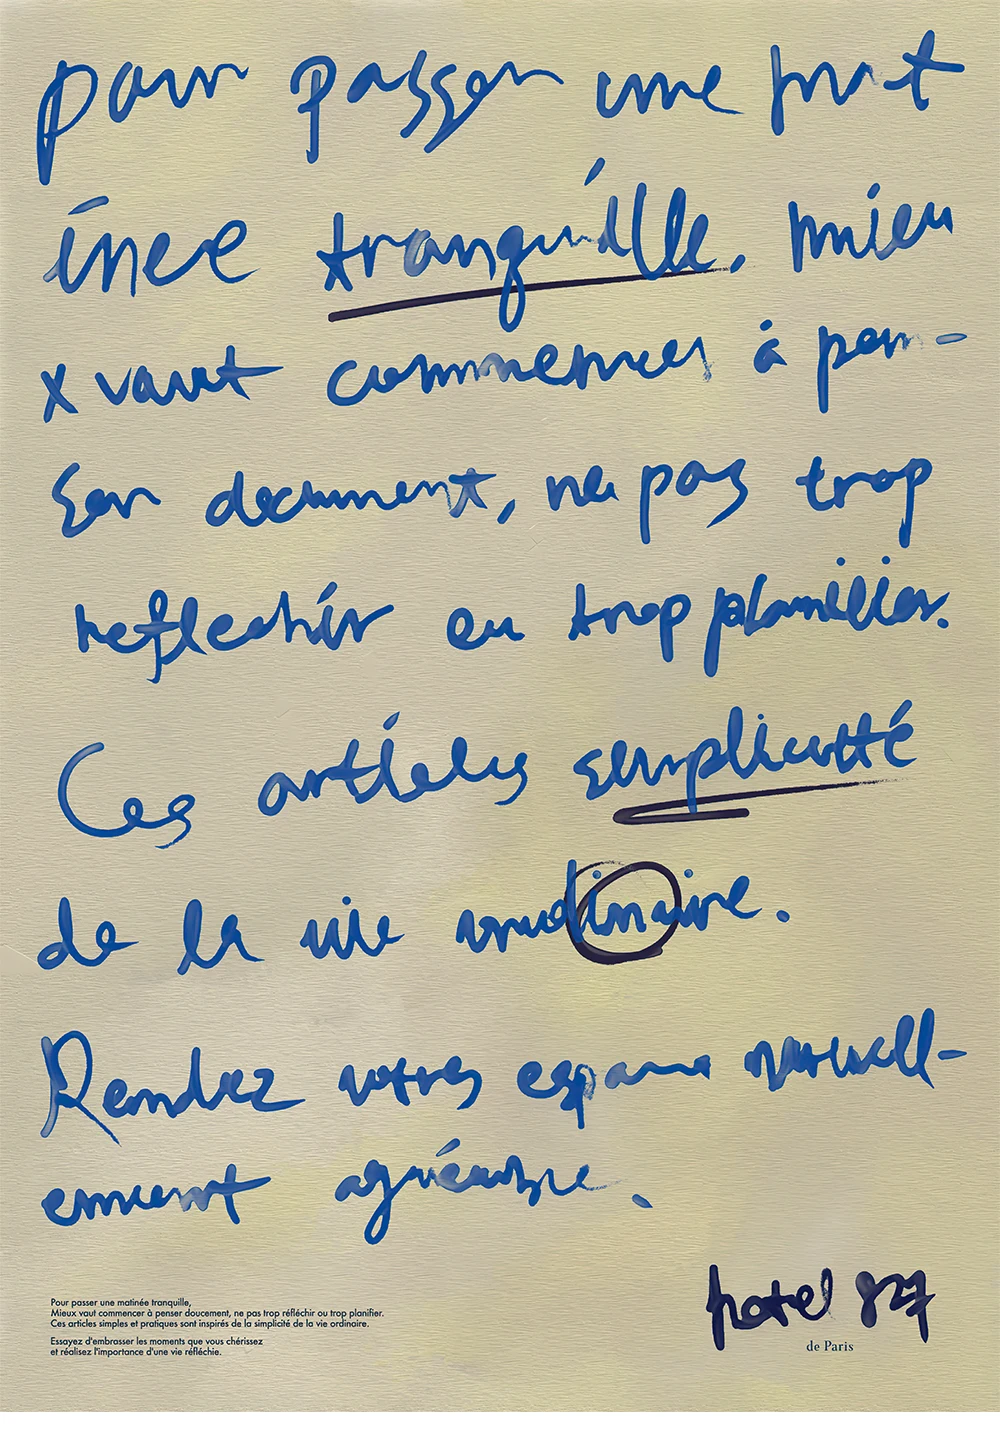 pour passer une mat
inée tranquille. mieu
x vaut commencer à pen-
ser doucement, ne pas trop
reflechir ou trop planifier.
Ces articles simplicité
de la vie ordinaire.
Rendez votres espace
ement agréable.
hotel 827
de Paris
Pour passer une matinée tranquille,
Mieux vaut commencer à penser doucement, ne pas trop réfléchir ou trop planifier.
Ces articles simples et pratiques sont inspirés de la simplicité de la vie ordinaire.
Essayez d'embrasser les moments que vous chérissez
et réalisez l'importance d'une vie réfléchie.